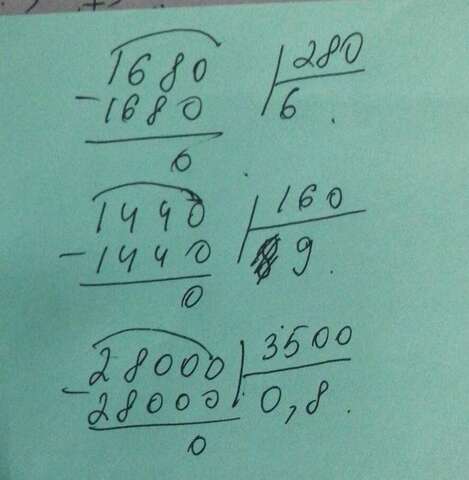 1680 280
-1680 6.
0
1440 160
-1440 9.
0
28000 3500
-28000 0,8.
0